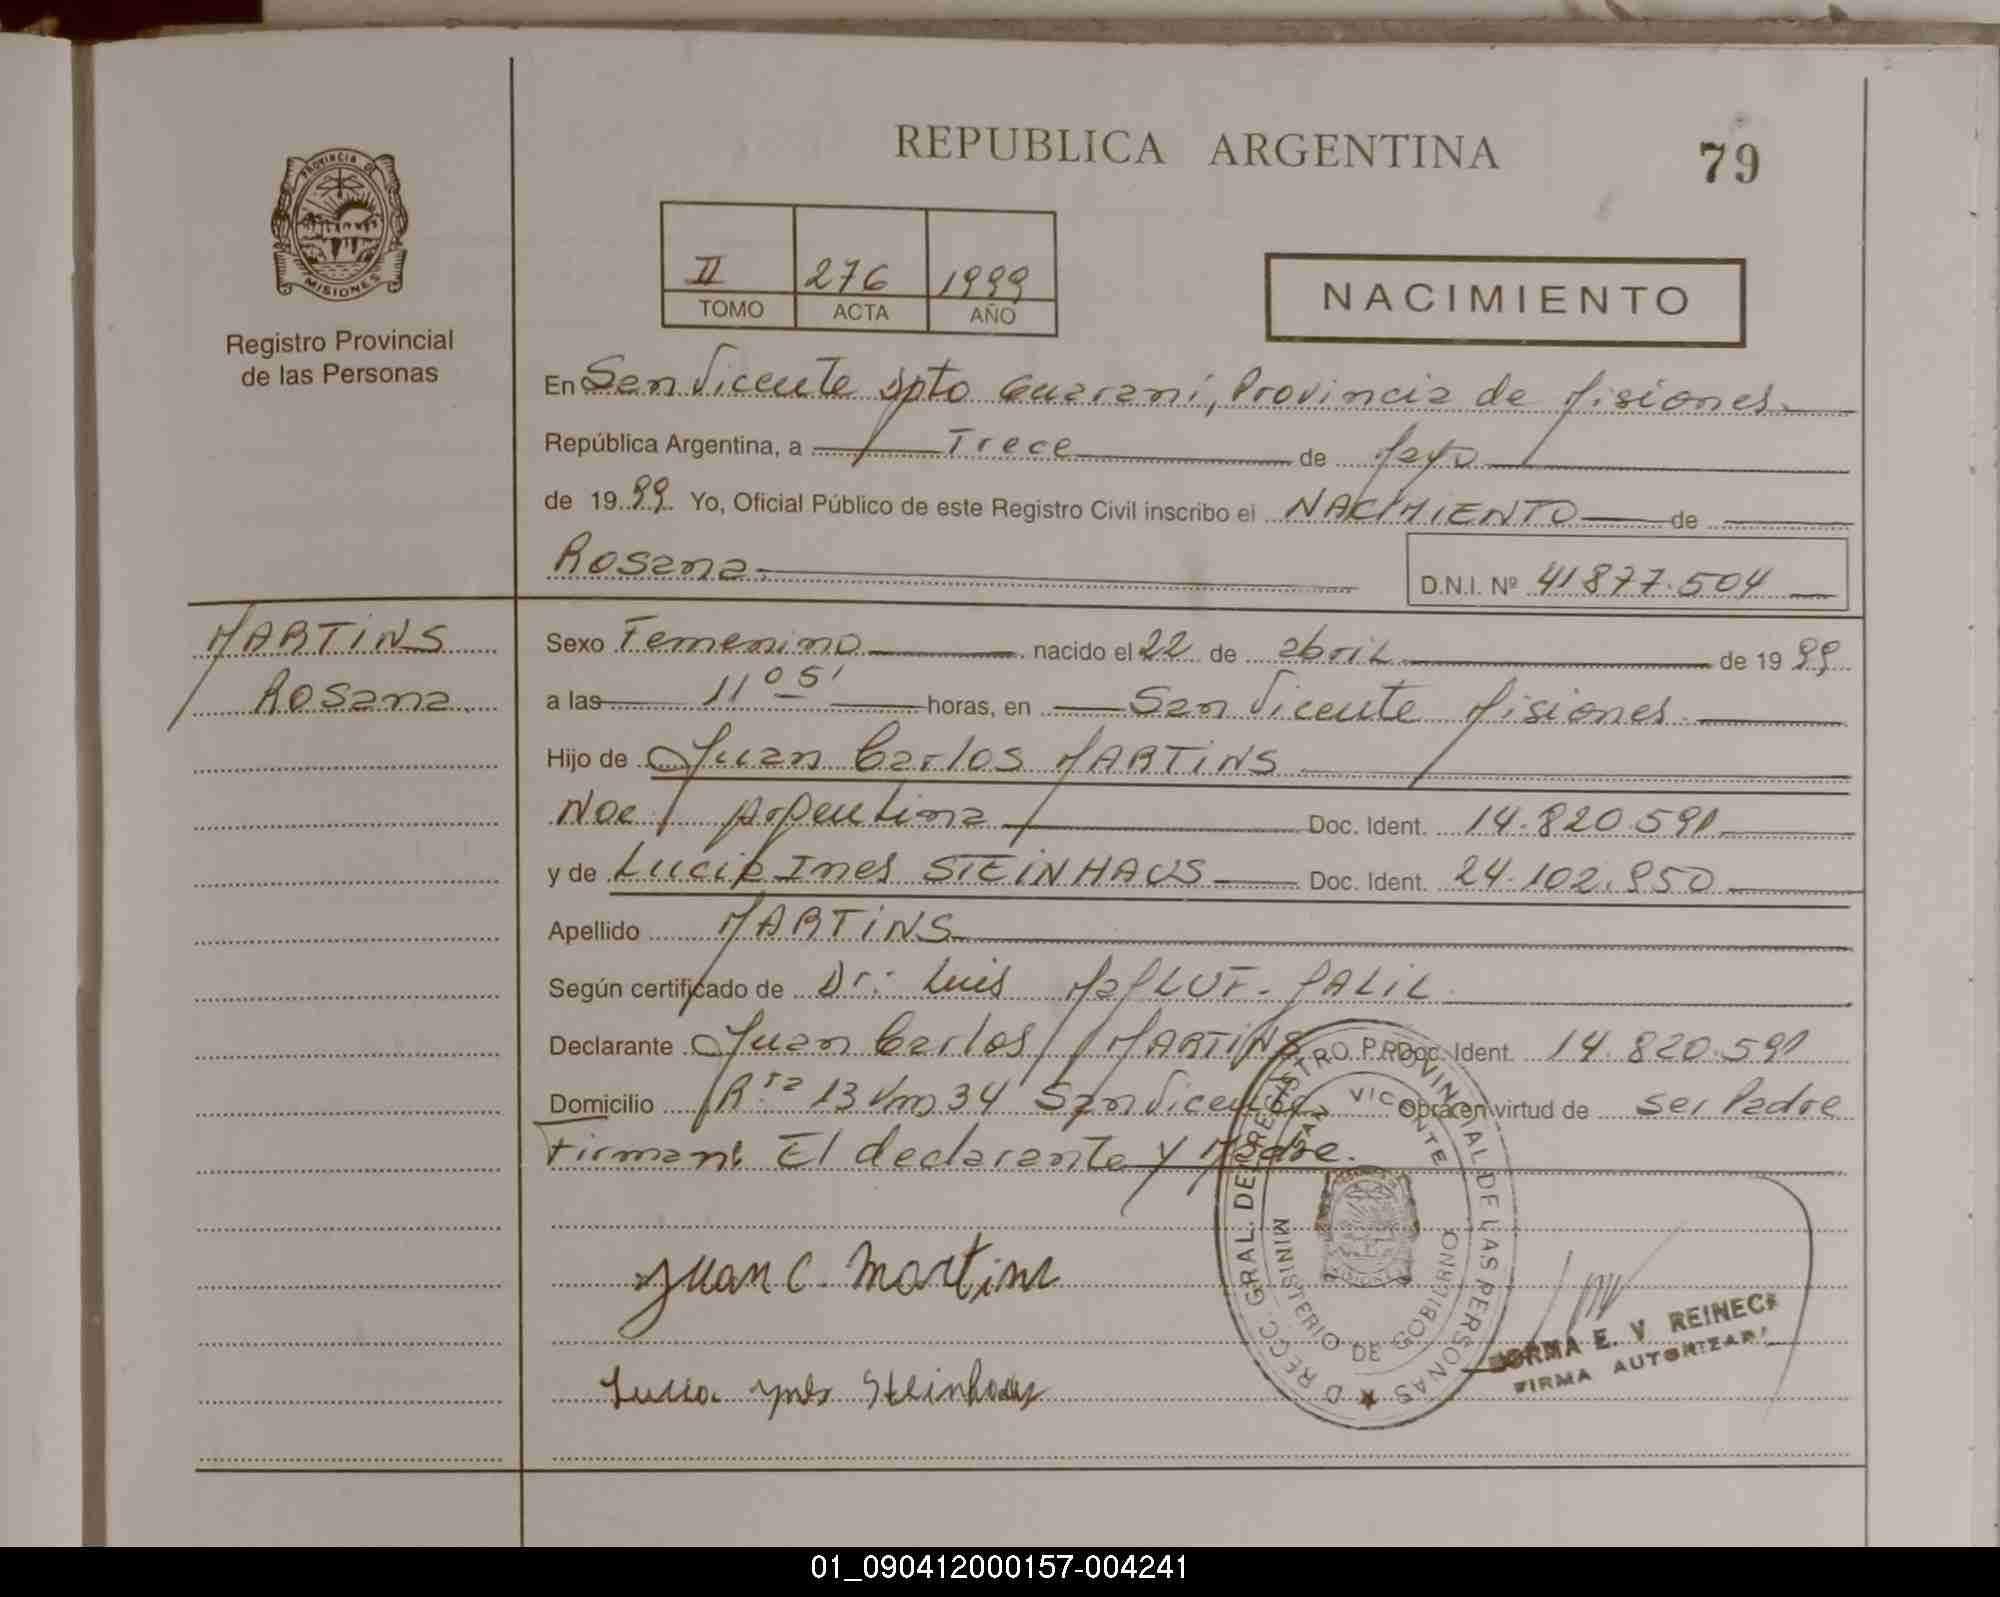 REPUBLICA ARGENTINA
79
PROVINCIA DE
MISIONES
Registro Provincial
de las Personas
II 276 1999
TOMO ACTA AÑO
NACIMIENTO
En San Vicente Dpto Guaraní, Provincia de Misiones
República Argentina, a Trece de Mayo
de 1999 Yo, Oficial Público de este Registro Civil inscribo el NACIMIENTO de
Rosana D.N.I. Nº 41877.504
MARTINS
Rosana
Sexo Femenino nacido el 22 de abril de 1999
a las 11 05' horas, en San Vicente Misiones
Hijo de Juan Carlos MARTINS
Nac. Argentina Doc. Ident. 14.820.591
y de Lucia Ines STEINHAUS Doc. Ident. 24.102.950
Apellido MARTINS
Según certificado de Dr: Luis MALIL
Declarante Juan Carlos MARTINS Doc. Ident. 14.820.591
Domicilio Rta 13 Km 34 San Vicente Obra en virtud de ser Padre
Firman: El declarante y Madre.
Juan C. Martins
Lucia Ynes Steinhaus
DIRECC. GRAL. DE REGISTRO PROVINCIAL DE LAS PERSONAS
SAN VICENTE
MINISTERIO DE GOBIERNO
NORMA E. V. REINECK
FIRMA AUTORIZADA
01_090412000157-004241